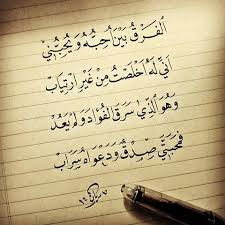 الفَرْقُ بَيْنَ أُحِبُّهُ وَيُحِبُّنِي
أَنِّي لَهُ أَخْلَصْتُ مِنْ غَيْرِ ارْتِيَابِ
وَهُوَ الَّذِي سَرَقَ الفُؤَادَ وَلَمْ يَعُدْ
فَمَحَبَّتِي صِدْقٌ وَدَعْوَاهُ سَرَابِ